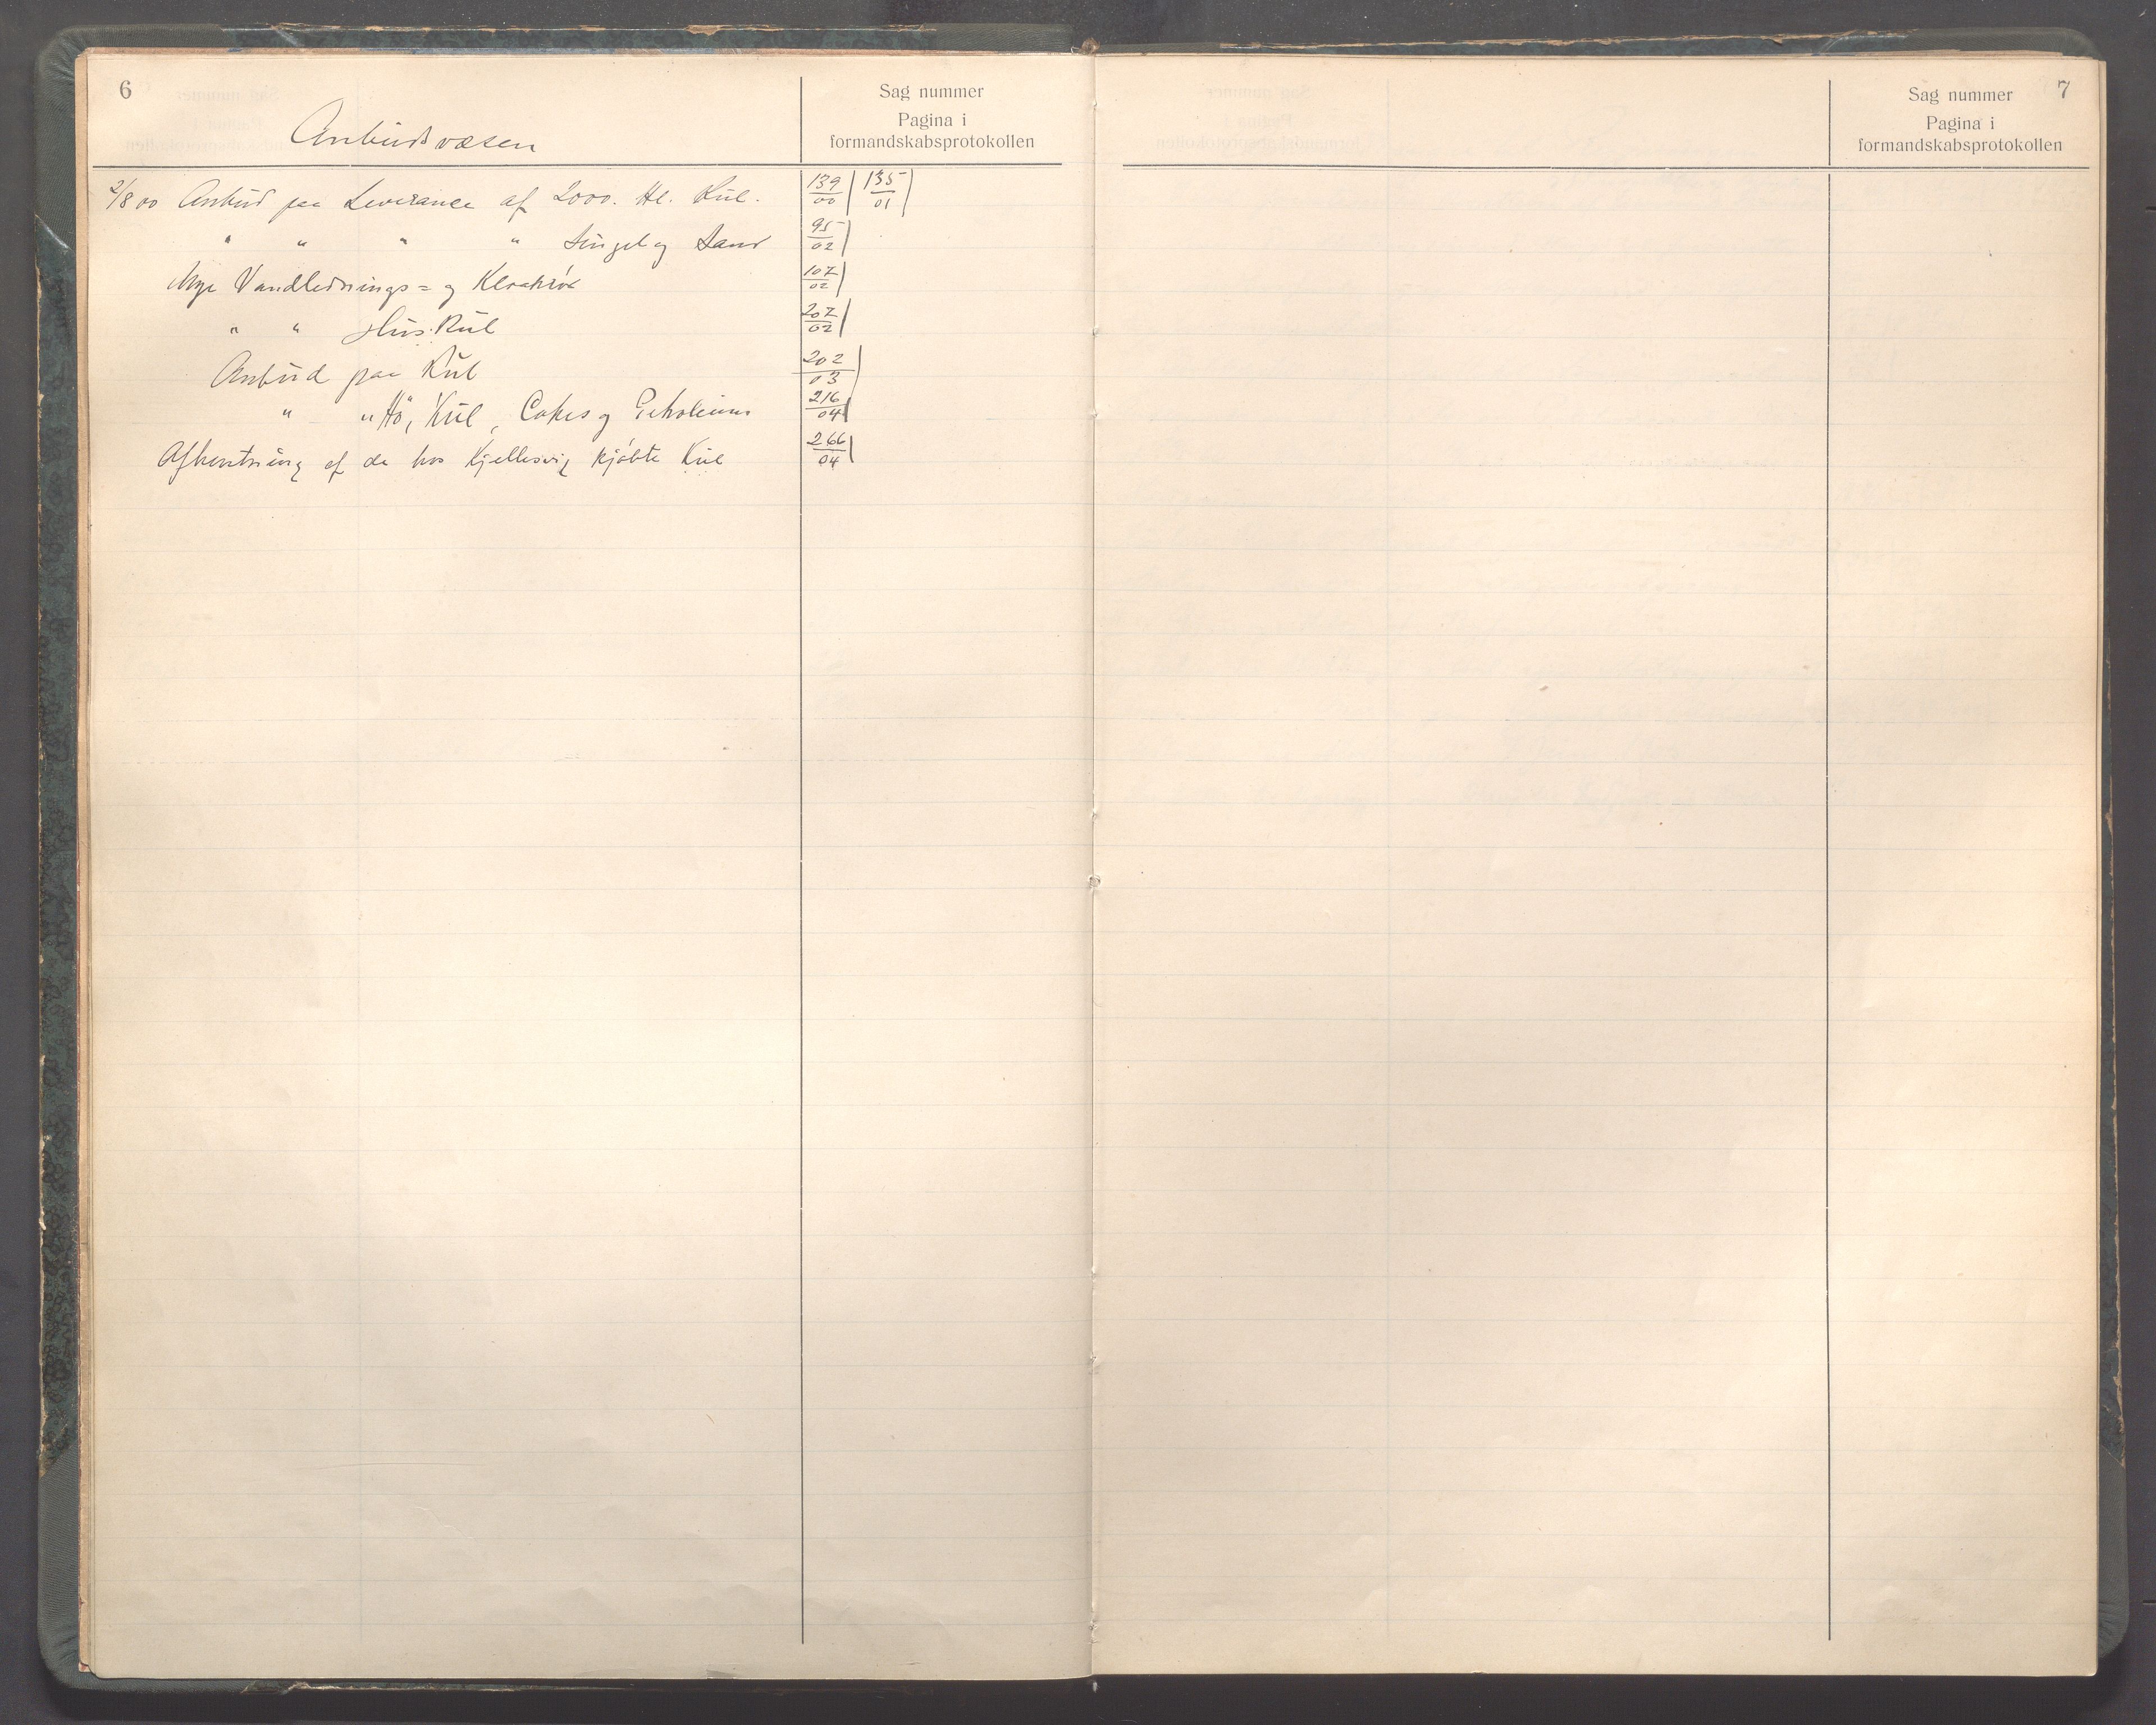 6
Sag nummer
Pagina i
formandskabsprotokollen
Anbudsvæsen
2/8 00 Anbud paa Leverance af 2000. Hl. Kul. 139/00 135/01
" " " " Singel og Sand 95/02
Nye Vandlednings= og Kloakrør 107/02
" " Hus. Kul 207/02
Anbud paa Kul 202/03
" " Hö, Kul, Cokes og Petroleum 216/04
Afhentning af de hos Kjellesvig kjöbte Kul 266/04
7
Sag nummer
Pagina i
formandskabsprotokollen